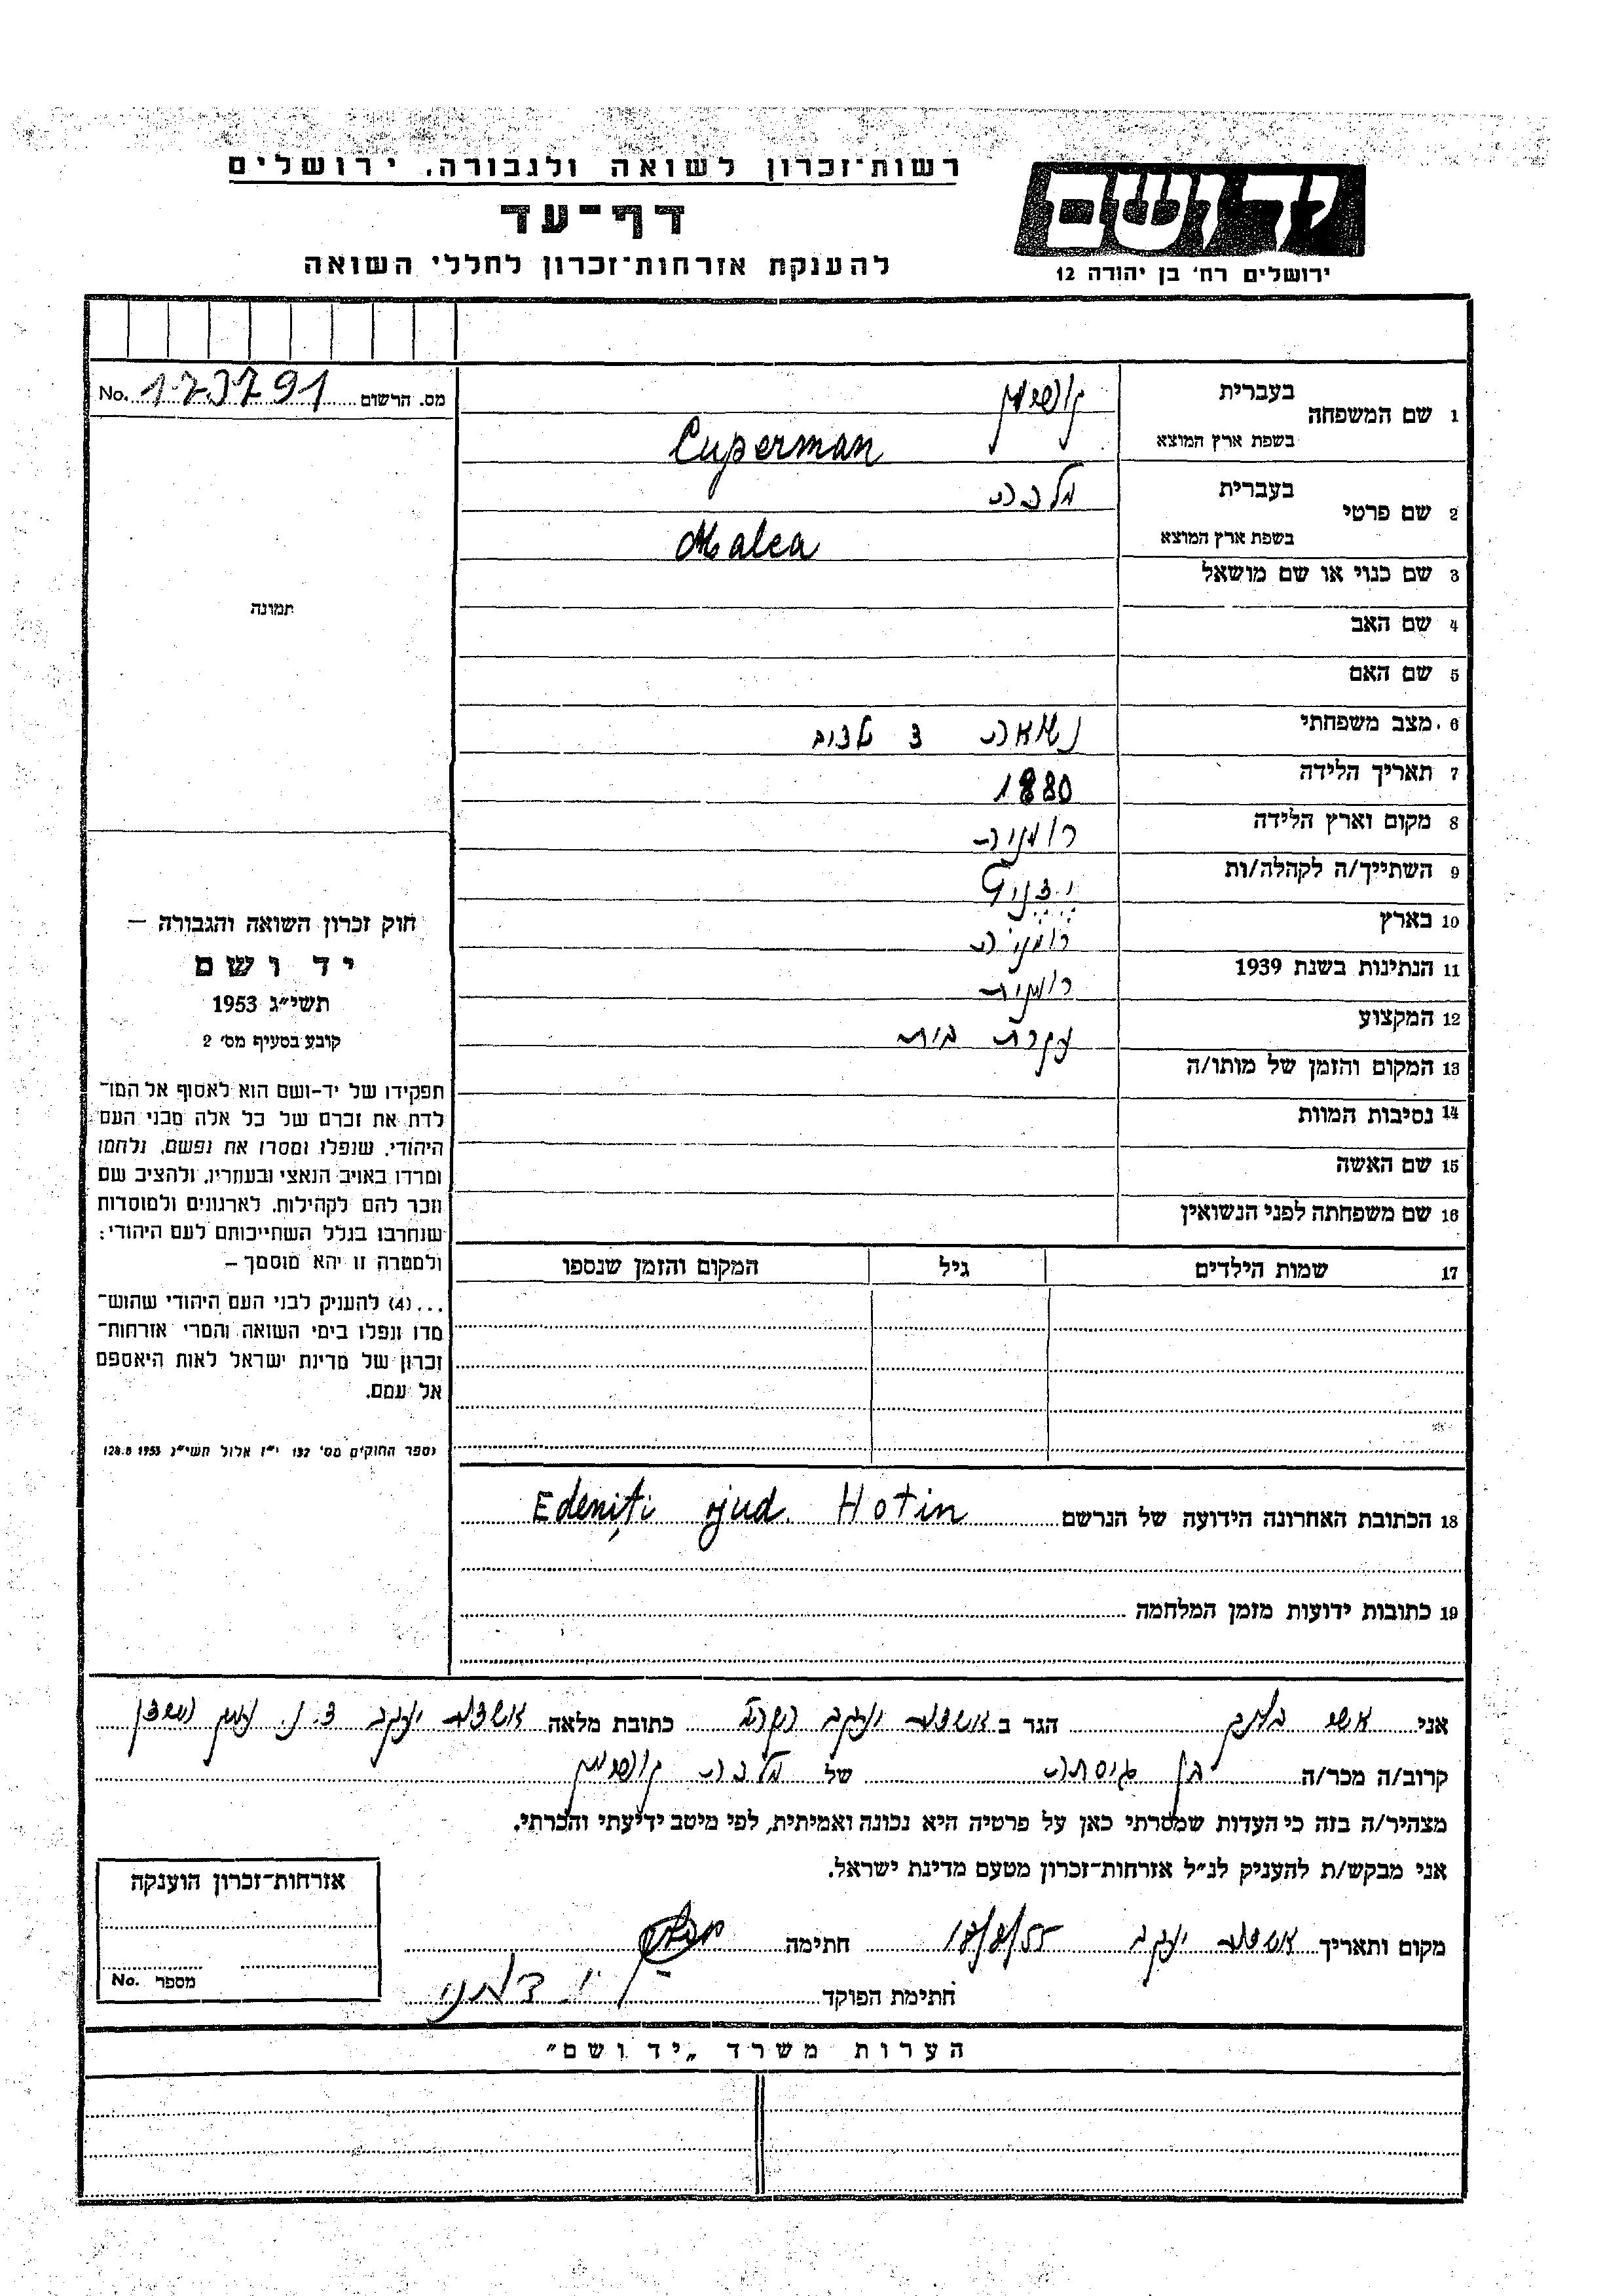 רשות־זכרון לשואה ולגבורה, ירושלים
דף־עד
להענקת אזרחות־זכרון לחללי השואה
יד ושם
ירושלים רח׳ בן יהודה 12
מס. הרשום No.
1 שם המשפחה בעברית קופרמן
בשפת ארץ המוצא Cuperman
2 שם פרטי בעברית מלכה
בשפת ארץ המוצא Malca
3 שם כנוי או שם מושאל
4 שם האב
5 שם האם
6 מצב משפחתי נשואה
7 תאריך הלידה 1880
8 מקום וארץ הלידה רומניה
9 השתייך/ה לקהלה/ות ידניץ
10 בארץ רומניה
11 הנתינות בשנת 1939 רומנית
12 המקצוע עקרת בית
13 המקום והזמן של מותו/ה
14 נסיבות המוות
15 שם האשה
16 שם משפחתה לפני הנשואין
17 שמות הילדים גיל המקום והזמן שנספו
18 הכתובת האחרונה הידועה של הנרשם Edeniți jud. Hotin
19 כתובות ידועות מזמן המלחמה
תמונה
חוק זכרון השואה והגבורה —
יד ושם
תשי״ג 1953
קובע בסעיף מס׳ 2
תפקידו של יד-ושם הוא לאסוף אל המו־
לדת את זכרם של כל אלה מבני העם
היהודי, שנפלו ומסרו את נפשם, נלחמו
ומרדו באויב הנאצי ובעוזריו, ולהציב שם
וזכר להם לקהילות, לארגונים ולמוסדות
שנחרבו בגלל השתייכותם לעם היהודי;
ולמטרה זו יהא מוסמך —
...(4) להעניק לבני העם היהודי שהוש־
מדו ונפלו בימי השואה והמרי אזרחות־
זכרון של מדינת ישראל לאות היאספם
אל עמם.
(ספר החוקים מס׳ 132 י״ז אלול תשי״ג 28.8.1953)
אני הגר ב אשדות יעקב כתובת מלאה אשדות יעקב ד.נ. עמק הירדן
קרוב/ה מכר/ה בן גיסתה של מלכה קופרמן
מצהיר/ה בזה כי העדות שמסרתי כאן על פרטיה היא נכונה ואמיתית, לפי מיטב ידיעתי והכרתי.
אני מבקש/ת להעניק לנ״ל אזרחות־זכרון מטעם מדינת ישראל.
מקום ותאריך אשדות יעקב 18/8/55 חתימה
חתימת הפוקד
אזרחות־זכרון הוענקה
מספר No.
הערות משרד „יד ושם״